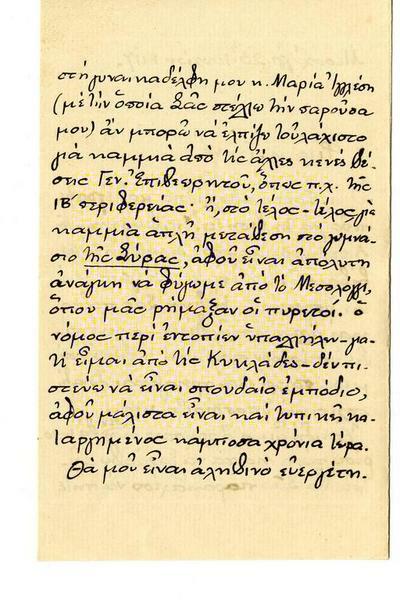 στὴ γυναικαδέλφη μου κ. Μαρία Ἰγγλέση
(μὲ τὴν ὁποία Σᾶς στέλλω τὴν παροῦσα
μου) ἂν μπορῶ νὰ ἐλπίζω τοὐλάχιστο
γιὰ καμμιὰ ἀπὸ τὶς ἄλλες κενὲς θέ-
σεις Γεν. Ἐπιθεωρητοῦ, ὅπως π.χ. τῆς
ΙΒ΄ περιφερείας· ἤ, στὸ τέλος-τέλος, γιὰ
καμμιὰ ἁπλῆ μετάθεση στὸ γυμνά-
σιο τῆς Σύρας, ἀφοῦ εἶναι ἀπόλυτη
ἀνάγκη νὰ φύγωμε ἀπὸ τὸ Μεσολόγγι,
ὅπου μᾶς ρήμαξαν οἱ πυρετοί. Ὁ
νόμος περὶ ἐντοπίων ὑπαλλήλων-για-
τὶ εἶμαι ἀπὸ τὶς Κυκλάδες-δὲν πι-
στεύω νὰ εἶναι σπουδαῖο ἐμπόδιο,
ἀφοῦ μάλιστα εἶναι καὶ τυπικῶς κα-
ταργημένος κάμποσα χρόνια τώρα.
Θὰ μοῦ εἶναι ἀληθινὸ εὐεργέτη-